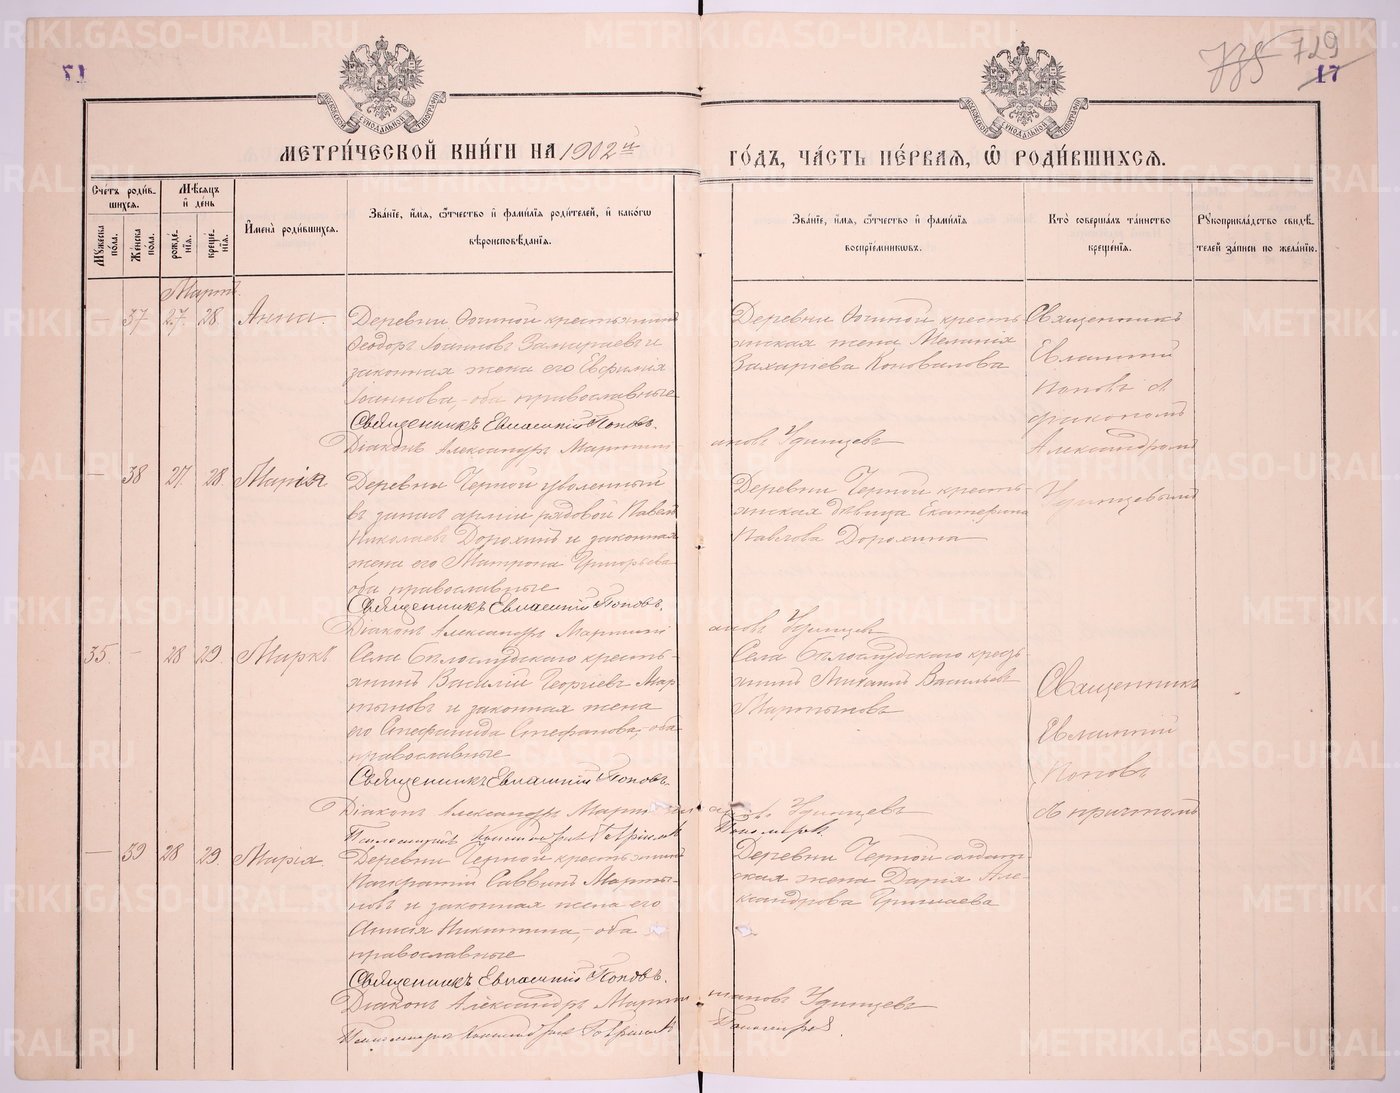 71
775 729
17
МЕТРИ́ЧЕСКОЙ КНИ́ГИ НА 1902й
ГО́ДЪ, ЧА́СТЬ ПЕ́РВАЯ, Ѽ РОДИ́ВШИХСЯ.
Счетъ роди́в-
шихся.
Мꙋжеска по́ла.
Же́нска по́ла.
Мѣ́сяцъ
и҆ де́нь
рожде́нїѧ.
креще́нїѧ.
И҆мена̀ роди́вшихсѧ.
Зва́нїе, и҆́мѧ, ѻ҆́тчество и҆ фами́лїѧ роди́телей, и҆ како́гѡ
вѣроисповѣ́данїѧ.
Зва́нїе, и҆́мѧ, ѻ҆́тчество и҆ фами́лїѧ
воспрїе́мникѡвъ.
Кто̀ соверша́лъ та́инство
креще́нїѧ.
Рꙋкоприкла́дство свидѣ́-
телей за́писи по жела́нїю.
Мартъ.
— 37 27. 28. Анна.
Деревни крестьянинъ
Ѳеодоръ Іоанновъ Замараевъ и
законная жена его Евфимія
Іоаннова, оба православные
Священникъ Евлампій Поповъ.
Діаконъ Александръ Мартині
ановъ Удинцевъ
Деревни кресть-
янская жена Меланія
Захаріева Коновалова
Священникъ
Евлампій
Поповъ с
діакономъ
Александромъ
Удинцевымъ
— 38 27. 28 Марія
Деревни Черной уволенный
въ запасъ арміи рядовой Павелъ
Николаевъ Дорохинъ и законная
жена его Матрона Григорьева
оба православные
Священникъ Евлампій Поповъ.
Діаконъ Александръ Мартині
ановъ Удинцевъ
Деревни Черной кресть-
янская дѣвица Екатерина
Павлова Дорохина
35. — 28 29. Маркъ
Села Бѣлослудскаго кресть-
янинъ Василій Георгіевъ Мар
тыновъ и законная жена
его Стефанида Стефанова, оба
православные
Священникъ Евлампій Поповъ.
Діаконъ Александръ Марти
Удинцевъ
Села Бѣлослудскаго кресть
янинъ Михаилъ Васильевъ
Мартыновъ
Священникъ
Евлампій
Поповъ
съ причтомъ
— 39 28 29. Марія.
Деревни Черной крестьянинъ
Панкратій Саввинъ Марты-
новъ и законная жена его
Анисія Никитина, оба
православные
Священникъ Евлампій Поповъ.
Діаконъ Александръ Марти
ніановъ Удинцевъ
Деревни Черной солдат-
ская жена Дарія Але-
ксандрова Гришаева
METRIKI.GASO-URAL.RU